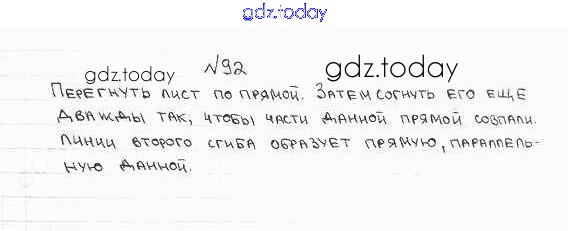 gdz.today
№92
gdz.today
gdz.today
ПЕРЕГНУТЬ ЛИСТ ПО ПРЯМОЙ. ЗАТЕМ СОГНУТЬ ЕГО ЕЩЕ
ДВАЖДЫ ТАК, ЧТОБЫ ЧАСТИ ДАННОЙ ПРЯМОЙ СОВПАЛИ.
ЛИНИИ ВТОРОГО СГИБА ОБРАЗУЕТ ПРЯМУЮ, ПАРАЛЛЕЛЬ-
НУЮ ДАННОЙ.
gdz.today